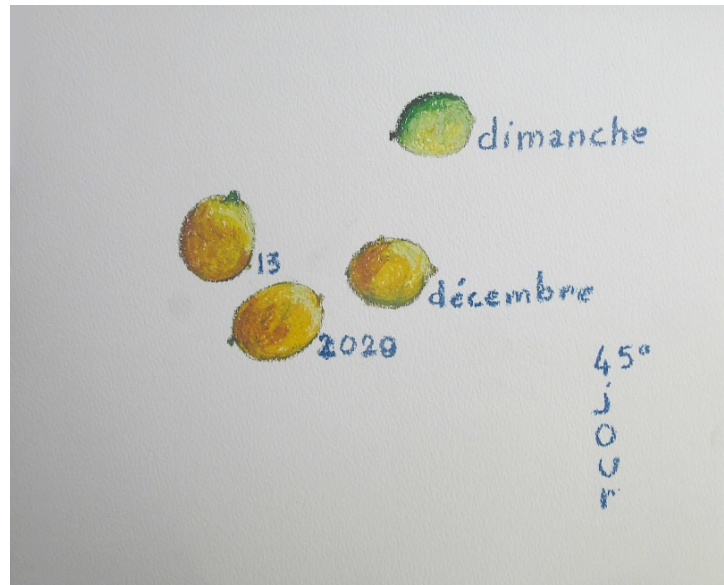 dimanche
13
décembre
2020
45°
j
o
u
r